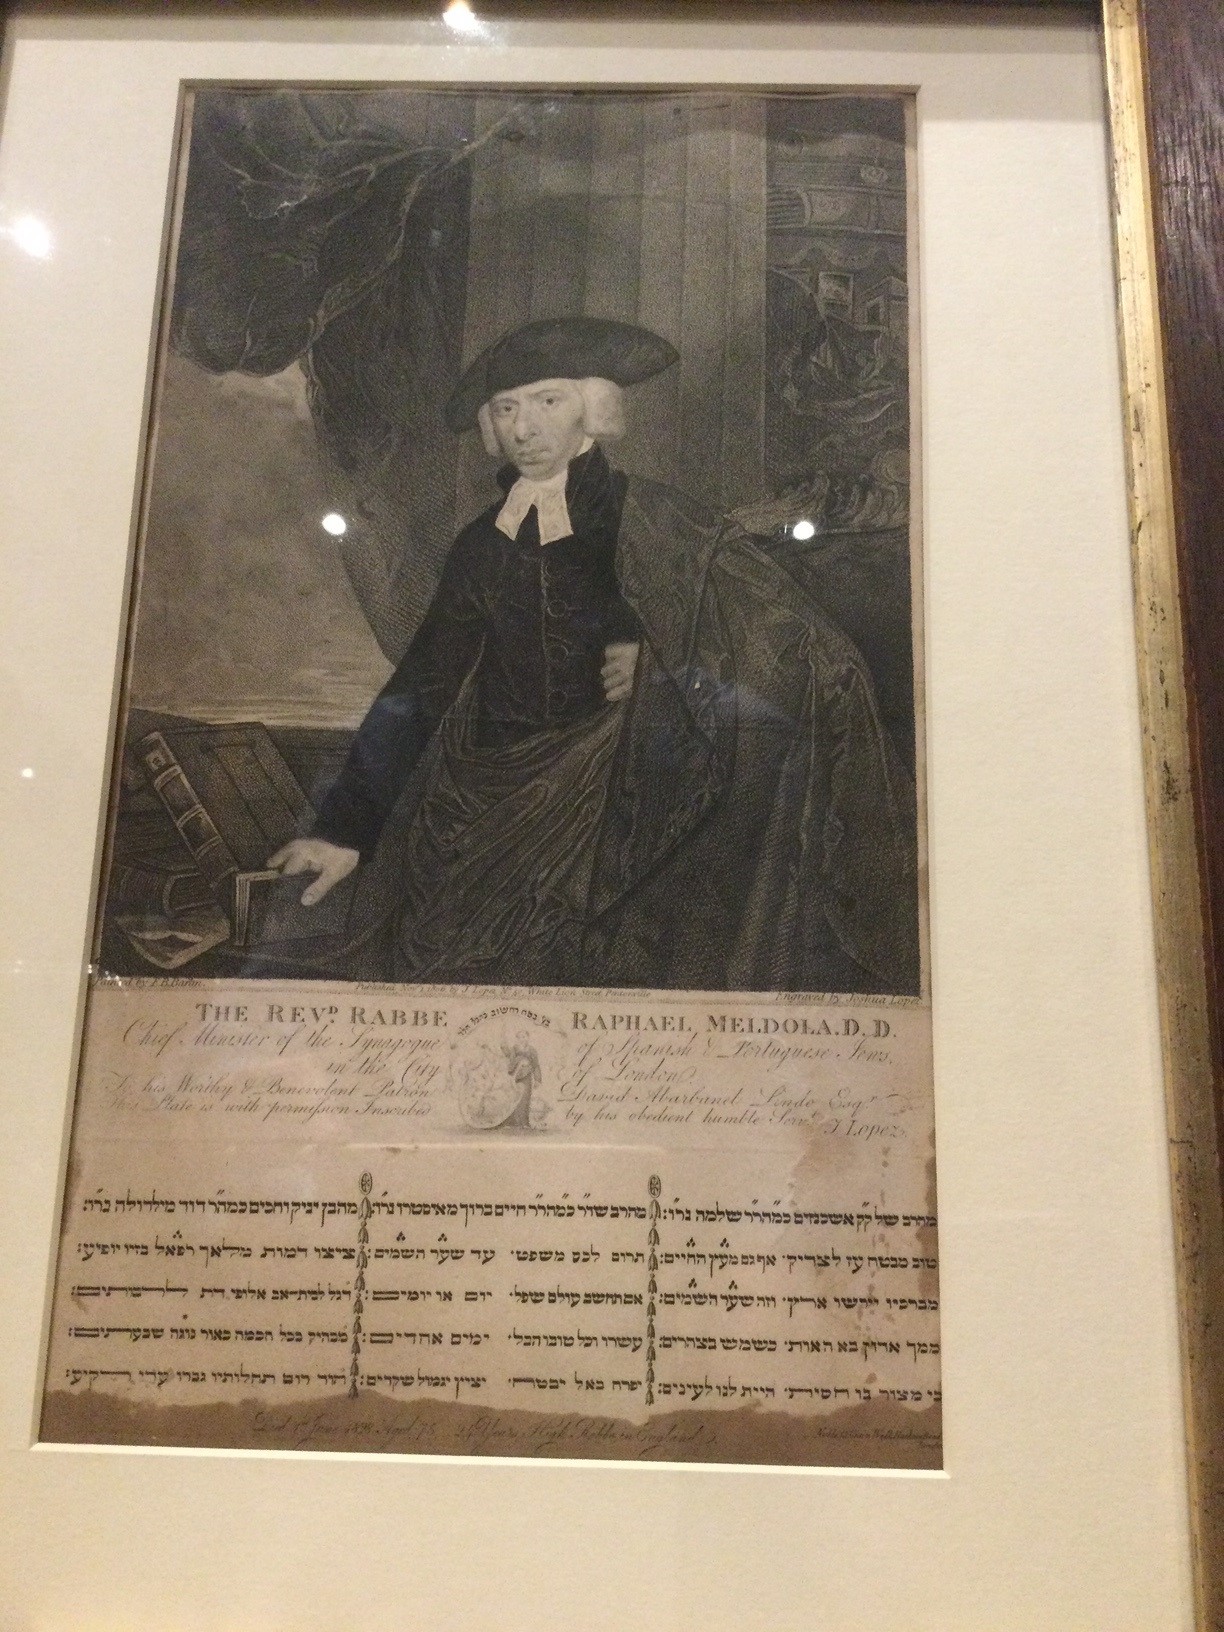 Painted by F.B. Barlin.
Published Nov. 1, 1806 by J. Lopez No. White Lion Street
Engraved by Joshua Lopez
THE REVD. RABBE RAPHAEL MELDOLA. D. D.
Chief Minister of the Synagogue of Spanish & Portuguese Jews.
in the City of London.
To his Worthy & Benevolent Patron David Abarbanel Lindo Esqr.
This Plate is with permission Inscribed by his obedient humble Servt. J. Lopez.
מהרב של ק״ק אשכנזים כמהר״ר שלמה נר״ו: מהרב שד״ר כמהר״ר חיים ברוך מאיסטרו נר״ו: מהבן יניק וחכים כמה״ר דוד מילדולה נר״ו:
טוב מבטח עז לצדיק· אף גם מעץ החיים: תרום לכס משפט· עד שער השמים: ציצו דמות מלאך רפאל בזיו יופיע:
מברכיו יירשו ארץ· וזה שער השמים: אם תחשב עולם שפל· יום או יומים: דגל לבית אב אלופי דת
ממך אדון בא האות· כשמש בצהרים: עשרו וכל טובו הבל· ימים אחדים: מבהיק בכל חכמה כאור נוגה שבעתים:
כי מצור בו חסית· היית לנו לעינים: יפרח כאל יבטח· יציץ יגמול שקדים: הוד רום תהלותיו גברו עדי רקיע:
Died 1st June 1828 Aged 75 24 Years High Rabbe in England.